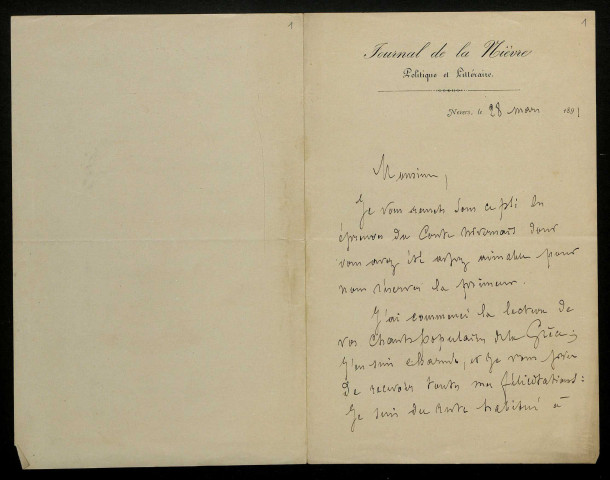 1
1
Journal de la Nièvre
Politique et Littéraire.
Nevers, le 28 mars 1891
Monsieur,
Je vous renvoie sous ce pli les
épreuves du Conte nivernais dont
vous avez été assez aimable pour
nous réserver la primeur.
J'ai commencé la lecture de
vos Chants populaires de la Grèce ;
J'en suis charmé, et je vous prie
de recevoir toutes mes félicitations :
Je suis du reste habitué à